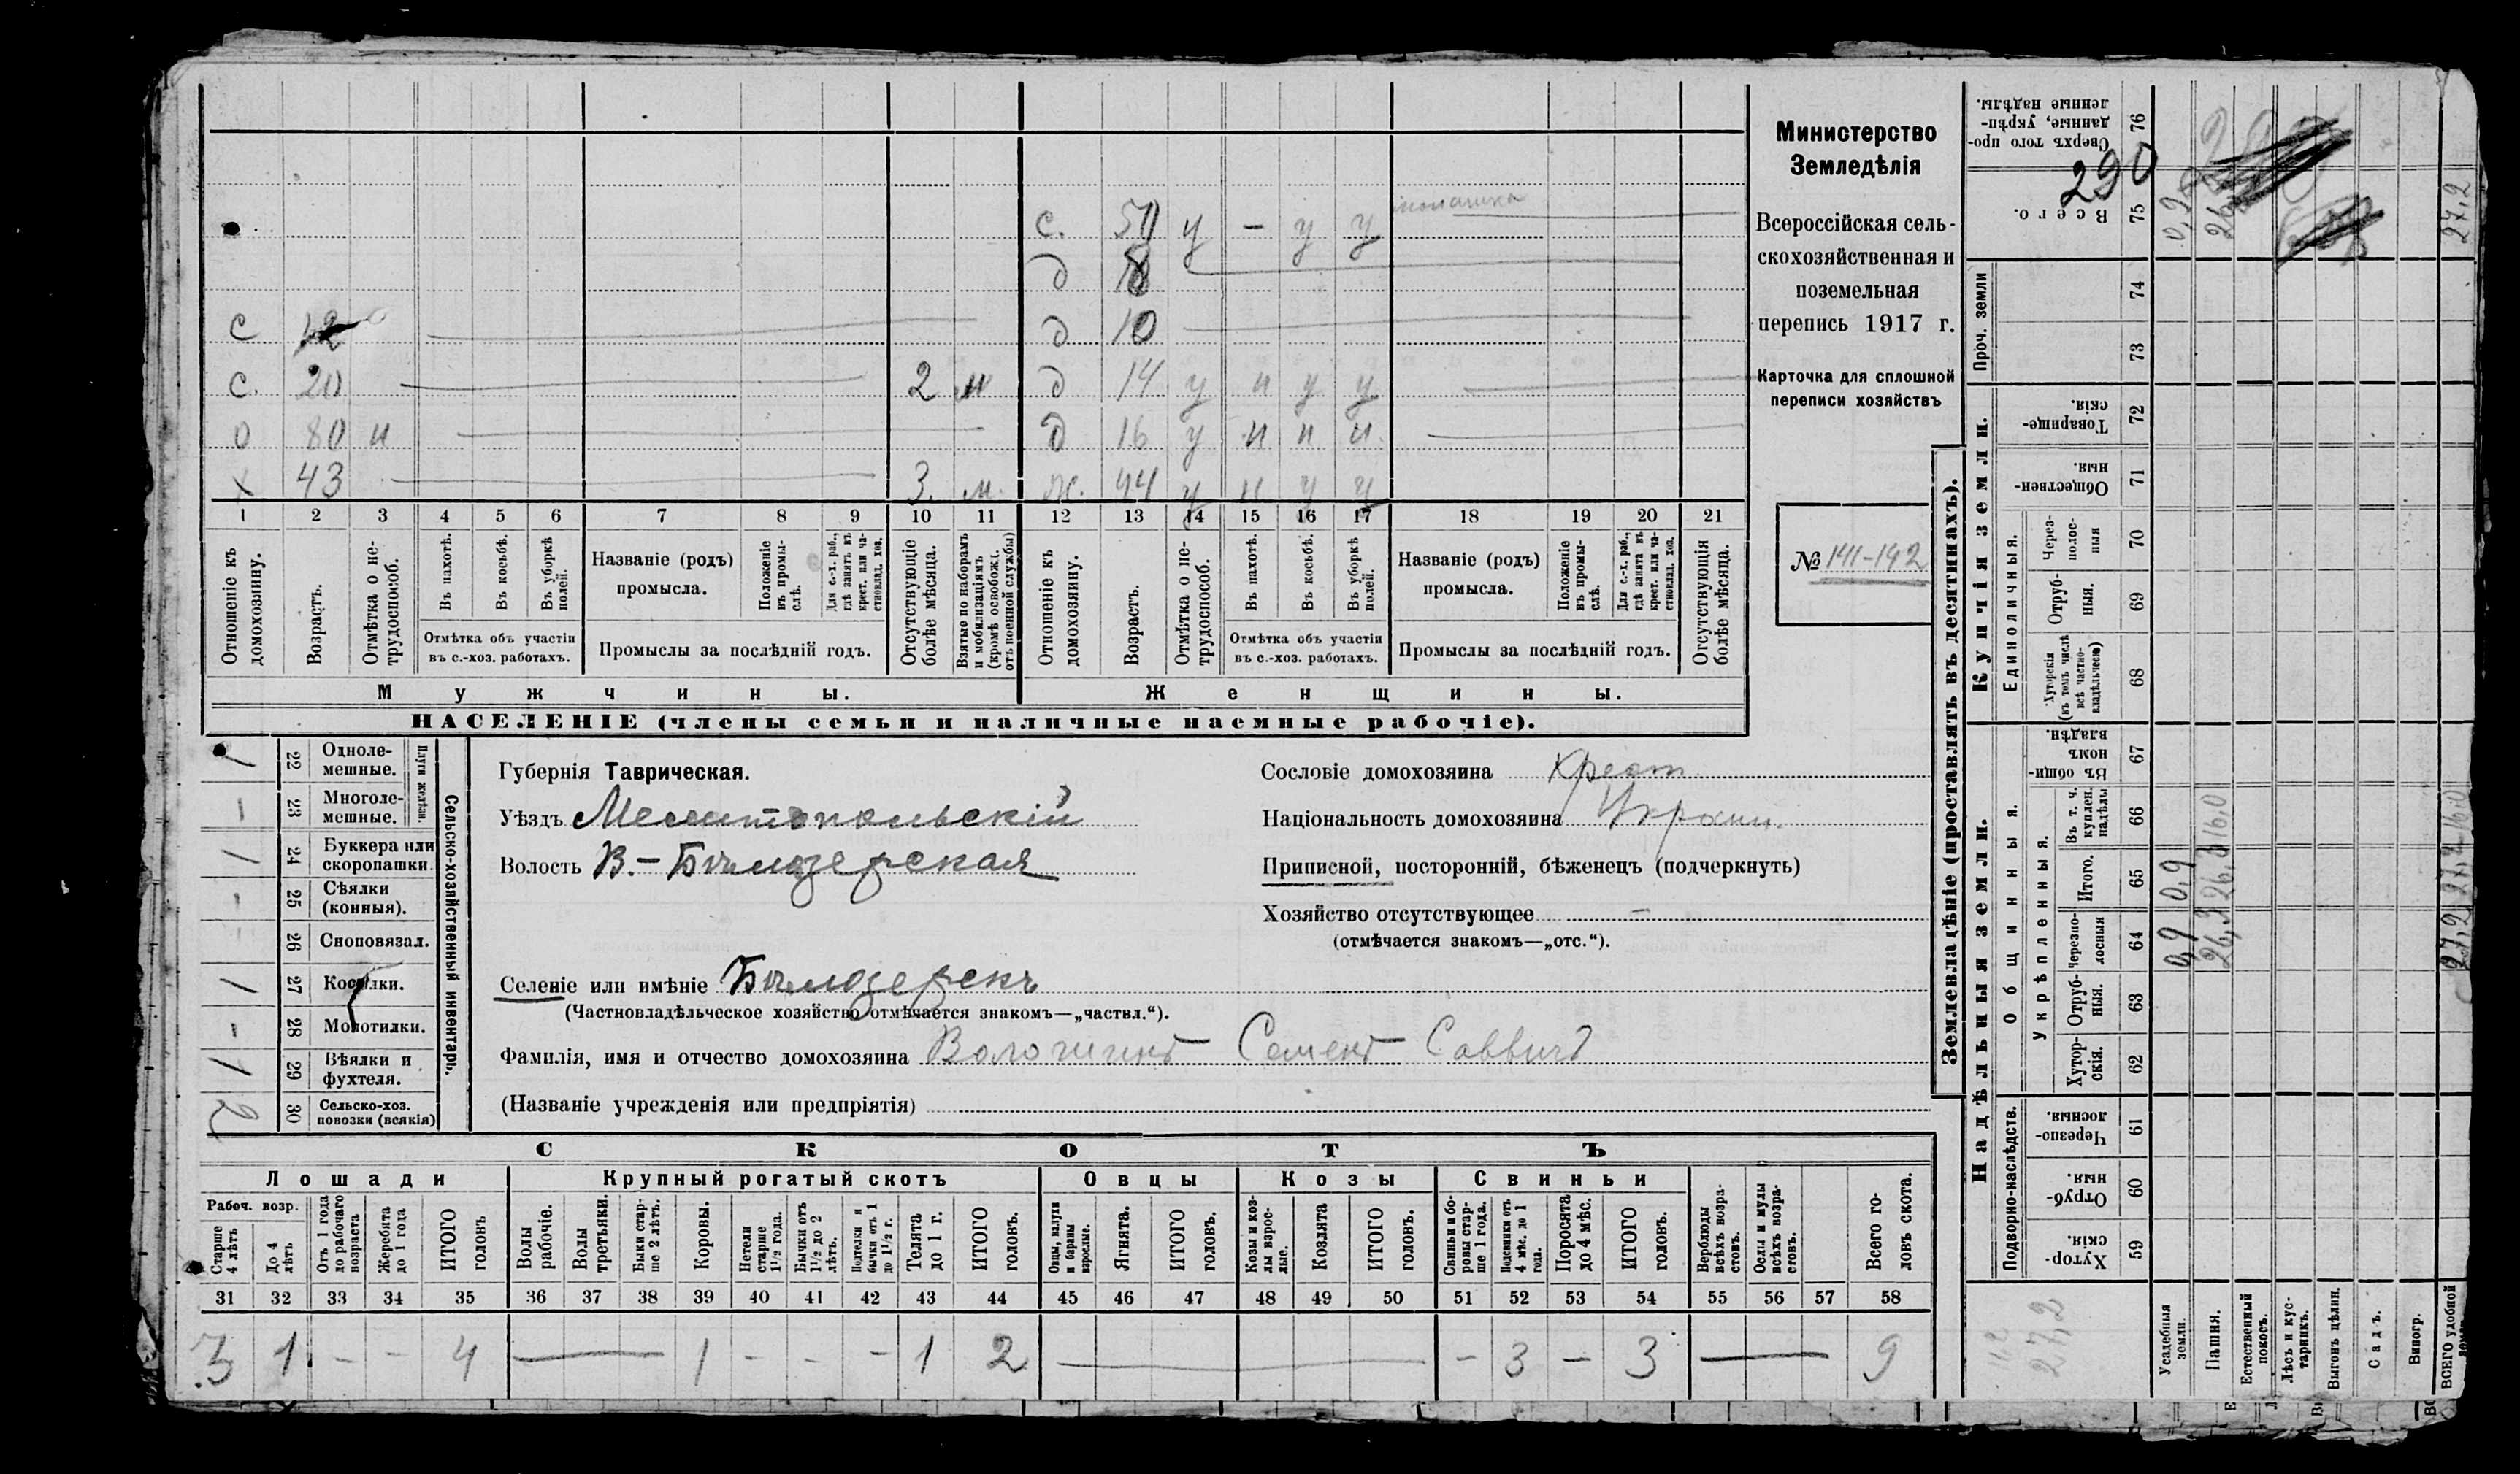 Министерство
Земледѣлія
Всероссійская сель-
скохозяйственная и
поземельная
перепись 1917 г.
Карточка для сплошной
переписи хозяйствъ
№ 141-142
с. у – у у
д 8
с д 10
с. 20 2 м д 14 у н у у
о 80 н д 16 у н н н
х 43 3. м. ж. 44 у н у у
1 2 3 4 5 6 7 8 9 10 11 12 13 14 15 16 17 18 19 20 21
Отношеніе къ домохозяину.
Возрастъ.
Отмѣтка о не-трудоспособ.
Въ пахотѣ.
Въ косьбѣ.
Въ уборкѣ полей.
Отмѣтка объ участіи въ с.-хоз. работахъ.
Названіе (родъ) промысла.
Положеніе въ промы-слѣ.
Для с.-х. раб., гдѣ занятъ въ крест. или ча-стновлад. хоз.
Промыслы за послѣдній годъ.
Отсутствующіе болѣе мѣсяца.
Взятые по наборамъ и мобилизаціямъ (кромѣ освобожд. отъ военной службы)
Отношеніе къ домохозяину.
Возрастъ.
Отмѣтка о не-трудоспособ.
Въ пахотѣ.
Въ косьбѣ.
Въ уборкѣ полей.
Отмѣтка объ участіи въ с.-хоз. работахъ.
Названіе (родъ) промысла.
Положеніе въ промы-слѣ.
Для с.-х. раб., гдѣ занята въ крест. или ча-стновлад. хоз.
Промыслы за послѣдній годъ.
Отсутствующія болѣе мѣсяца.
Мужчины. Женщины.
НАСЕЛЕНІЕ (члены семьи и наличные наемные рабочіе).
Сельско-хозяйственный инвентарь.
Плуги желѣзн.
1 22 Одноле-мешные.
– 23 Многоле-мешные.
1 24 Буккера или скоропашки.
– 25 Сѣялки (конныя).
– 26 Сноповязал.
1 27 Косилки.
– 28 Молотилки.
1 29 Вѣялки и фухтеля.
2 30 Сельско-хоз. повозки (всякія)
Губернія Таврическая.
Уѣздъ Мелитопольскій
Волость В.-Бѣлозерская
Селеніе или имѣніе Бѣлозерскъ
(Частновладѣльческое хозяйство отмѣчается знакомъ—„частвл.“).
Фамилія, имя и отчество домохозяина Волошинъ Семенъ Саввичъ
(Названіе учрежденія или предпріятія)
Сословіе домохозяина крест.
Національность домохозяина Украин.
Приписной, посторонній, бѣженецъ (подчеркнуть)
Хозяйство отсутствующее –
(отмѣчается знакомъ—„отс.“).
СКОТЪ
Лошади Крупный рогатый скотъ Овцы Козы Свиньи
Рабоч. возр.
Старше 4 лѣтъ
До 4 лѣтъ
Отъ 1 года до рабочаго возраста
Жеребята до 1 года
ИТОГО головъ
Волы рабочіе.
Волы третьяки.
Быки стар-ше 2 лѣтъ.
Коровы.
Нетели старше 1½ года.
Бычки отъ 1½ до 2 лѣтъ.
Подтелки и бычки отъ 1 до 1½ г.
Телята до 1 г.
ИТОГО головъ.
Овцы, валухи и бараны взрослые.
Ягнята.
ИТОГО головъ.
Козы и коз-лы взрос-лые.
Козлята
ИТОГО головъ.
Свиньи и бо-ровы стар-ше 1 года.
Подсвинки отъ 4 мѣс. до 1 года.
Поросята до 4 мѣс.
ИТОГО головъ.
Верблюды всѣхъ возра-стовъ.
Ослы и мулы всѣхъ возра-стовъ.
Всего го-ловъ скота.
31 32 33 34 35 36 37 38 39 40 41 42 43 44 45 46 47 48 49 50 51 52 53 54 55 56 57 58
3 1 – – 4 — 1 – – – 1 2 — – 3 – 3 — 9
Землевладѣніе (проставлять въ десятинахъ).
Купчія земли.
Надѣльныя земли.
Сверхъ того про-данные, укрѣп-ленные надѣлы. 76
290
Всего. 75
Проч. земли 74 73
Товарище-скія. 72
Обществен-ныя. 71
Единоличныя.
Через-полос-ныя 70
Отруб-ныя. 69
Хуторскія (въ томъ числѣ всѣ частно-владѣльческ.) 68
Общинныя.
Въ общи-номъ владѣн. 67
Укрѣпленныя.
Въ т. ч. куплен. надѣлы 66
Итого. 65
Черезпо-лосныя 64
Отруб-ныя. 63
Хутор-скія. 62
Подворно-наслѣдств.
Черезпо-лосныя. 61
Отруб-ныя. 60
Хутор-скія. 59
27,2
Усадебныя земли. 0,9 0,9 0,9
Пашня. 26,3 26,3 16,0
Естественный покосъ.
Лѣсъ и кус-тарникъ.
Выгонъ цѣлин.
Садъ.
Виногр.
ВСЕГО удобной 27,2 27,2 16,0 27,2